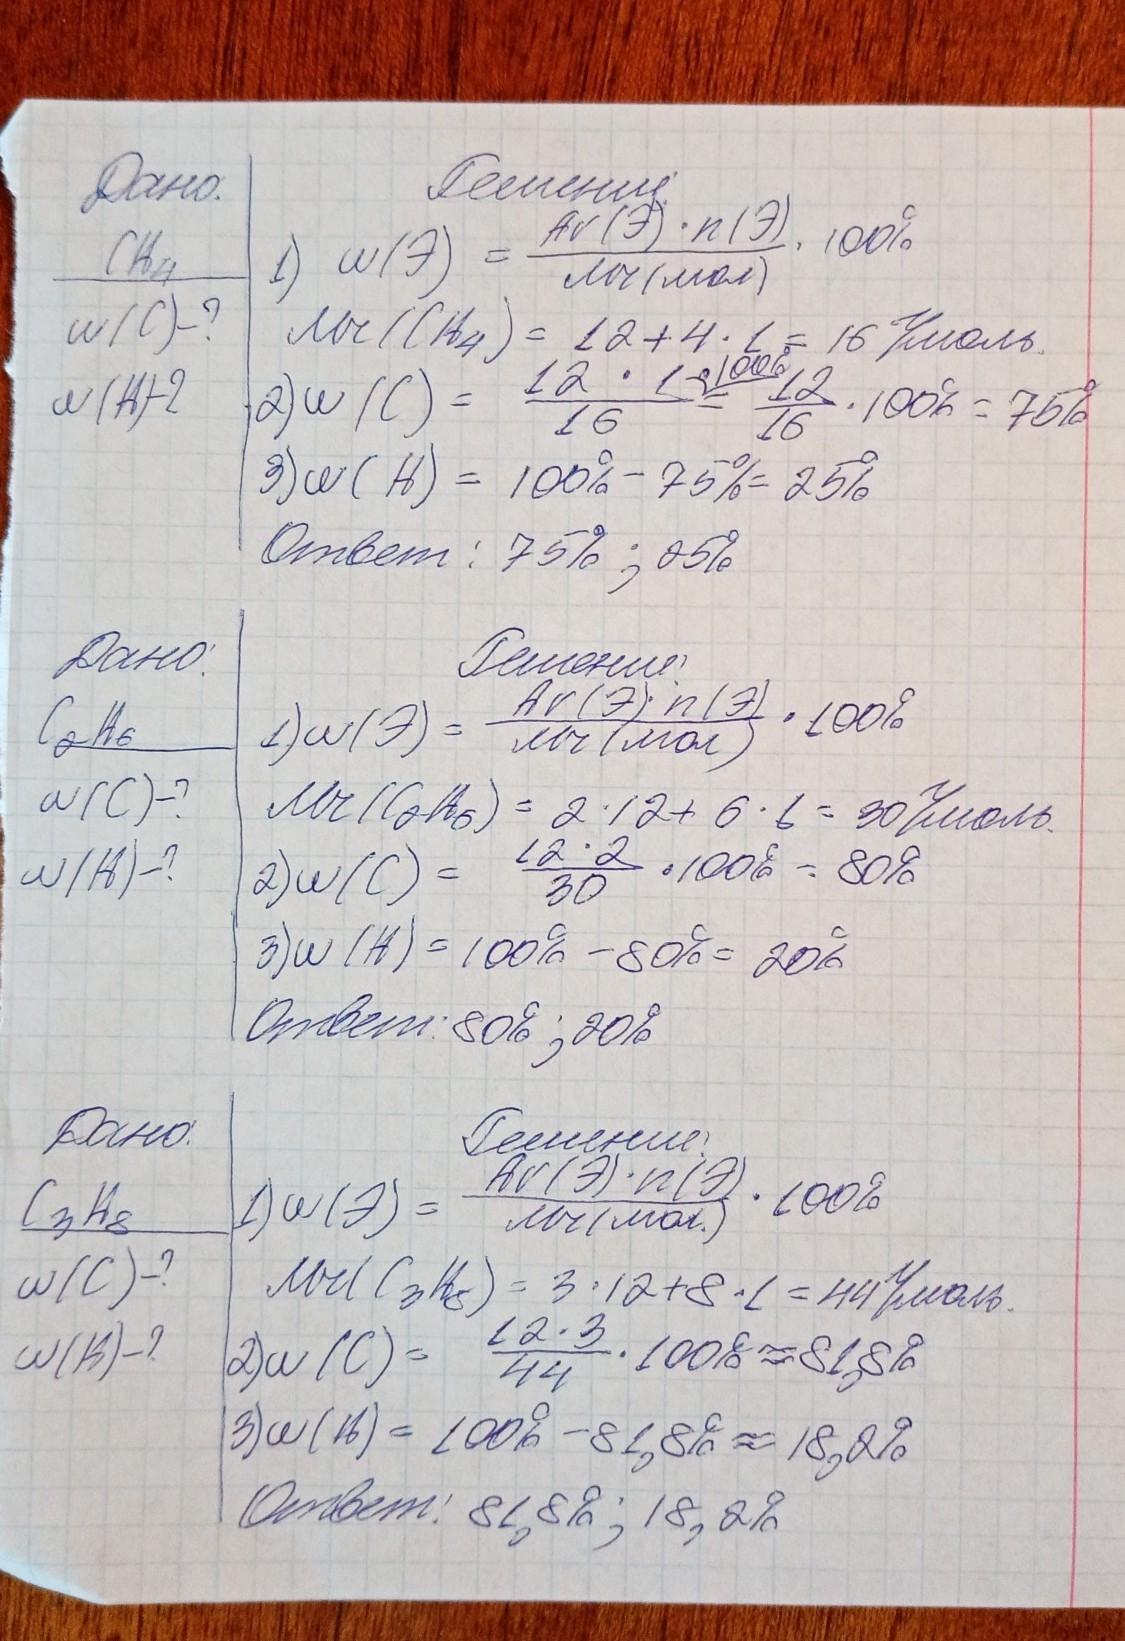 Дано:
CH₄
w(C)-?
w(H)-?
Решение:
1) w(Э) = Ar(Э)·n(Э) / Mr(мол) · 100%
Mr(CH₄) = 12+4·1 = 16 г/моль.
2) w(C) = 12·1 / 16 · 100% = 12/16 · 100% = 75%
3) w(H) = 100% - 75% = 25%
Ответ: 75% ; 25%
Дано:
C₂H₆
w(C)-?
w(H)-?
Решение:
1) w(Э) = Ar(Э)·n(Э) / Mr(мол) · 100%
Mr(C₂H₆) = 2·12+6·1 = 30 г/моль.
2) w(C) = 12·2 / 30 · 100% = 80%
3) w(H) = 100% - 80% = 20%
Ответ: 80% ; 20%
Дано:
C₃H₈
w(C)-?
w(H)-?
Решение:
1) w(Э) = Ar(Э)·n(Э) / Mr(мол.) · 100%
Mr(C₃H₈) = 3·12+8·1 = 44 г/моль.
2) w(C) = 12·3 / 44 · 100% ≈ 81,8%
3) w(H) = 100% - 81,8% ≈ 18,2%
Ответ: 81,8% ; 18,2%